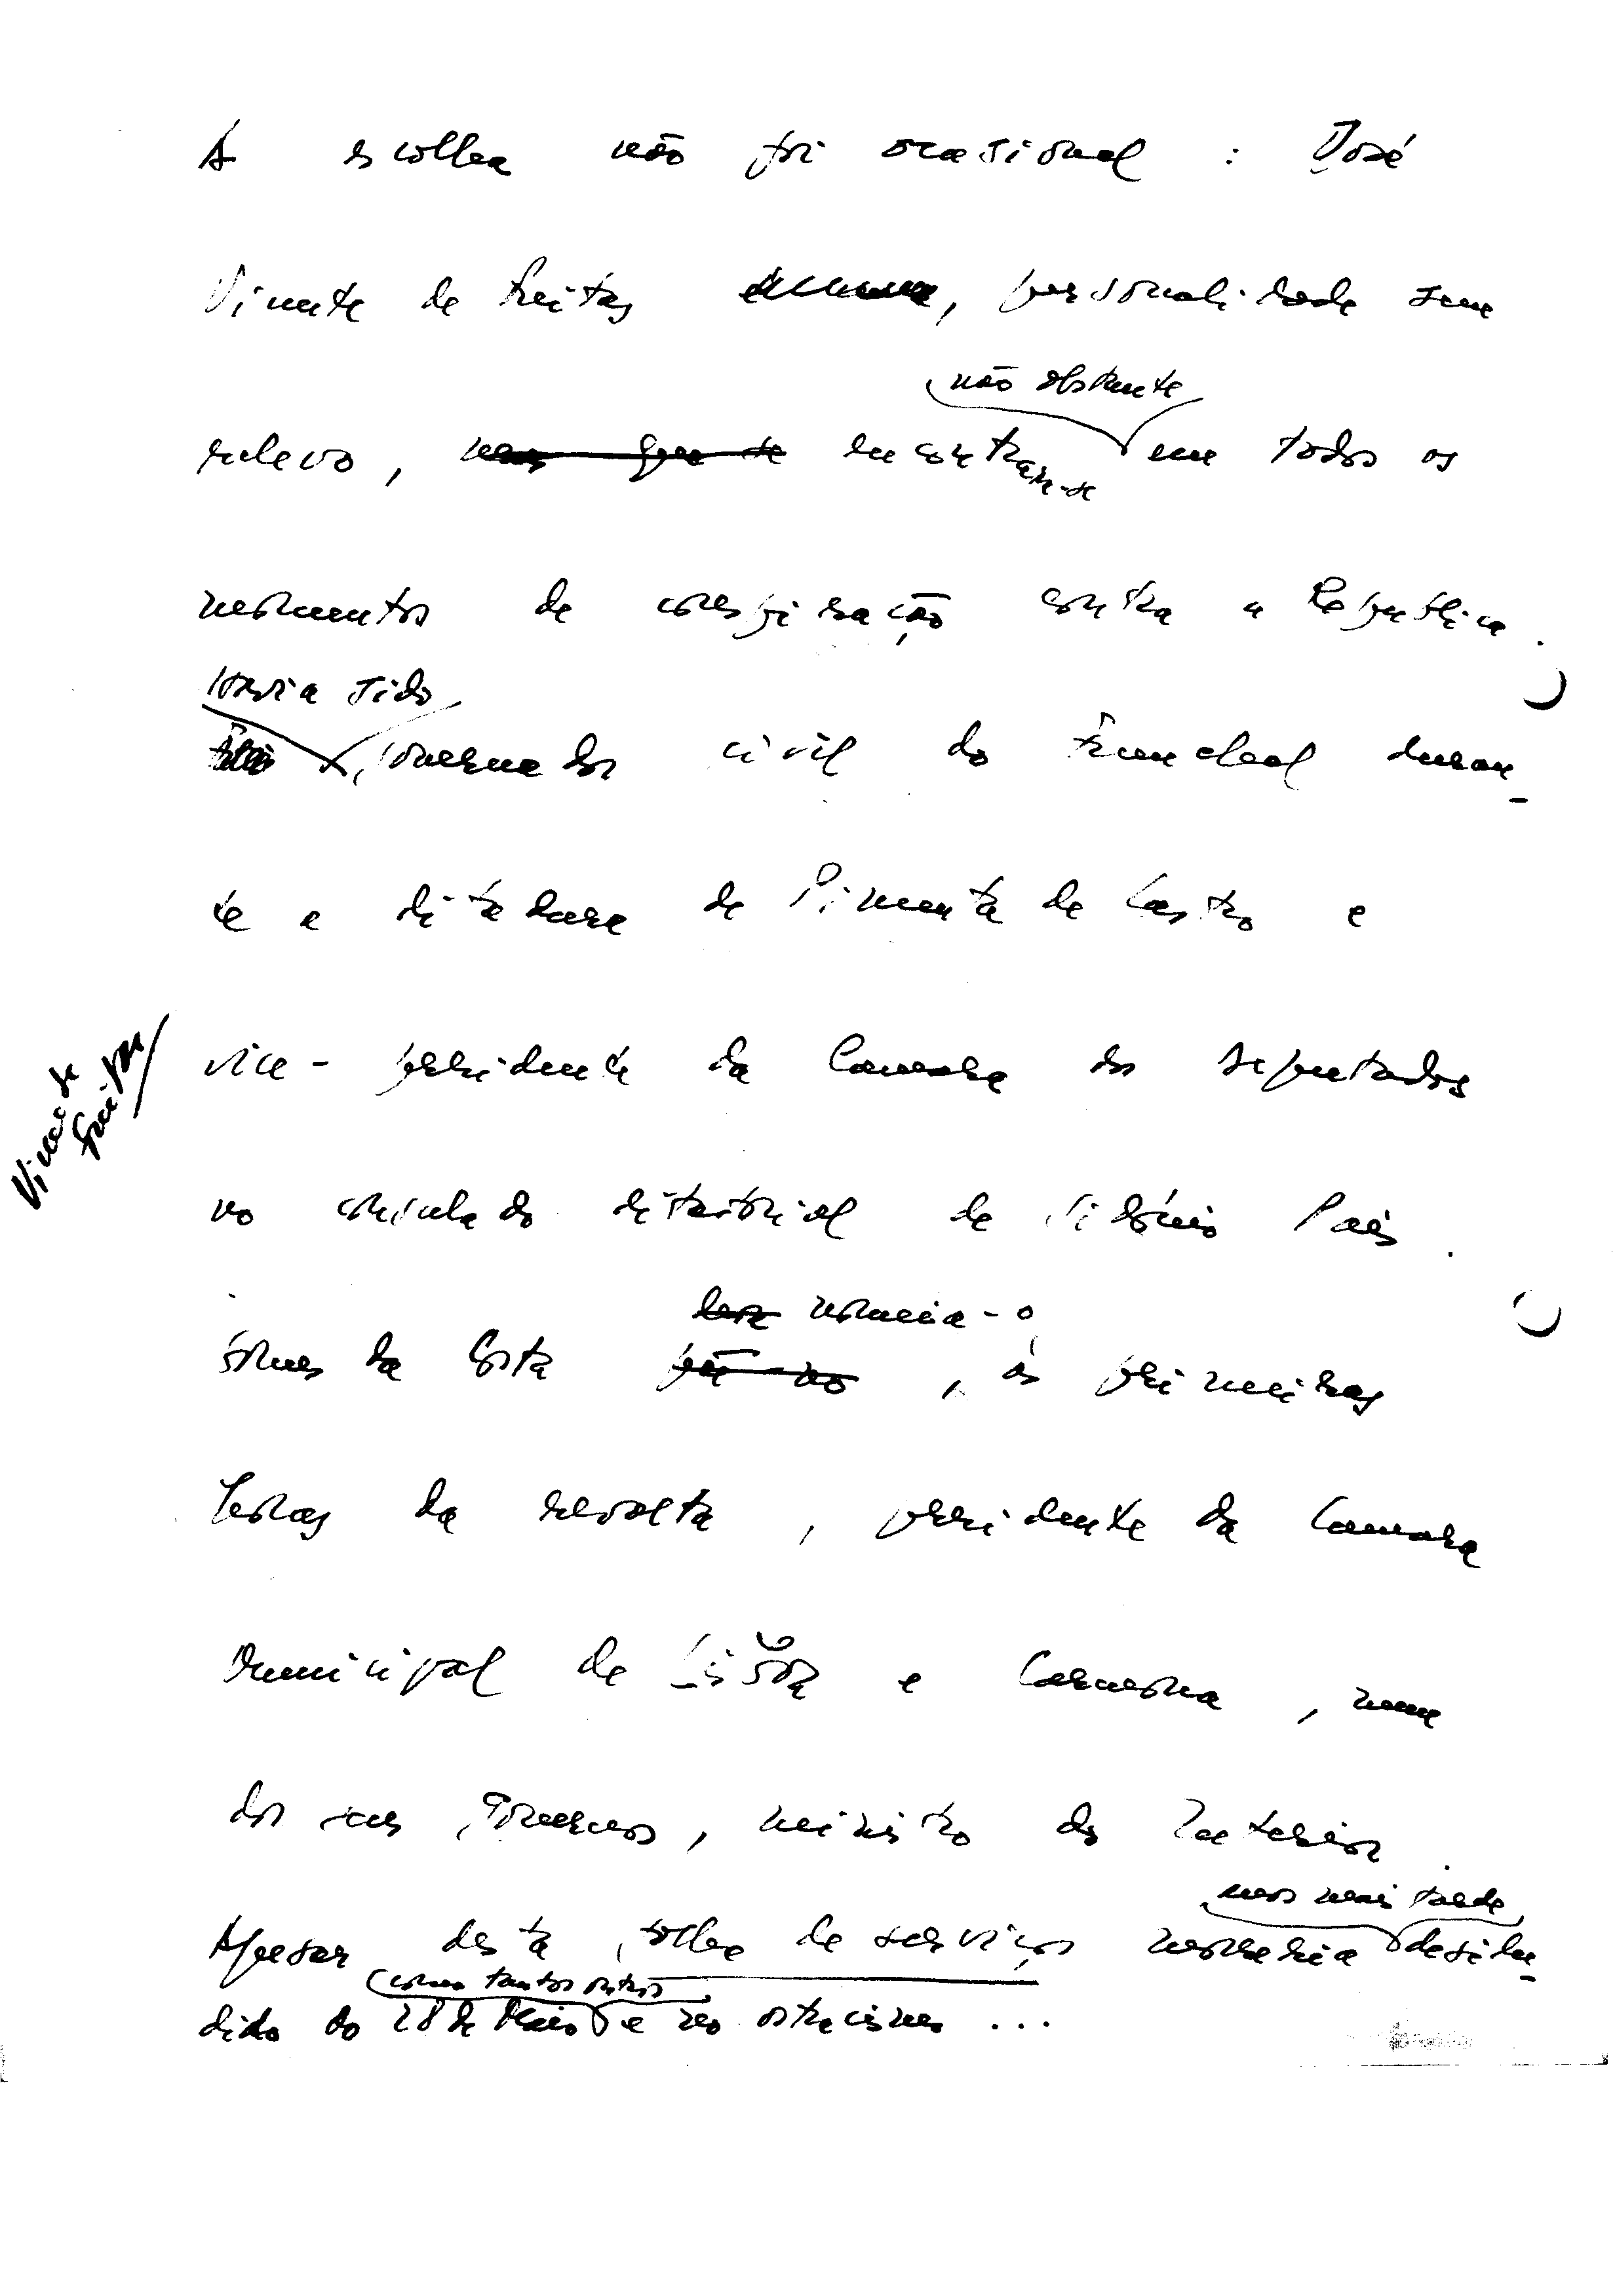 A escolha não foi ocasional : José
Vicente de Freitas , personalidade sem
não obstante
relevo, encontrara-se em todos os
momentos de conspiração contra a República.
Havia sido
governador civil do Funchal duran-
te a ditadura de Pimenta de Castro e
vice-presidente da Camara dos Deputados
no consulado ditatorial de Sidónio Pais.
Vicente de Freitas
nomeia-o
Gomes da Costa , às primeiras
horas da revolta, presidente da Camara
Municipal de Lisboa e Carmona, num
dos seus governos, ministro do Interior.
mas mais tarde
Apesar desta folha de serviços morreria desilu-
como tantos outros
dido do 28 de Maio e no ostracismo ...